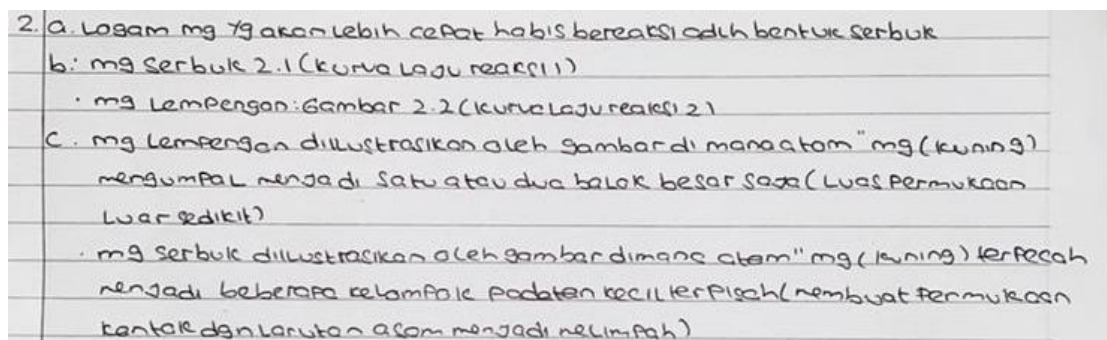 2. a. Logam mg yg akan lebih cepat habis bereaksi adlh bentuk serbuk
b: mg serbuk 2.1 (kurva Laju reaksi 1)
· mg Lempengan: Gambar 2.2 (kurva Laju reaksi 2)
C. mg Lempengan diilustrasikan oleh gambar di mana atom" mg (kuning)
mengumpal menjadi satu atau dua balok besar saja (Luas permukaan
Luar sedikit)
· mg serbuk diilustrasikan oleh gambar dimana atom" mg (kuning) terpecah
menjadi beberapa kelompok padatan kecil terpisah (membuat permukaan
kontak dgn larutan asam menjadi melimpah)